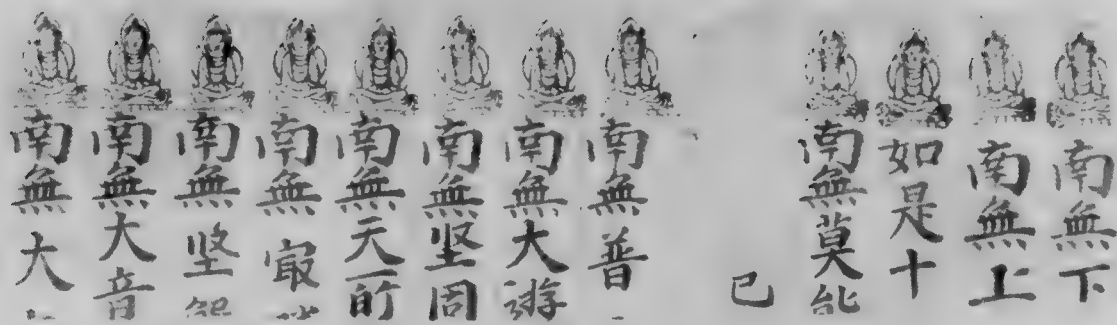 南無下
南無上
如是十
南無莫能
已
南無普
南無大遊
南無坚固
南無天所
南無㝡
南無坚
南無大音
南無大